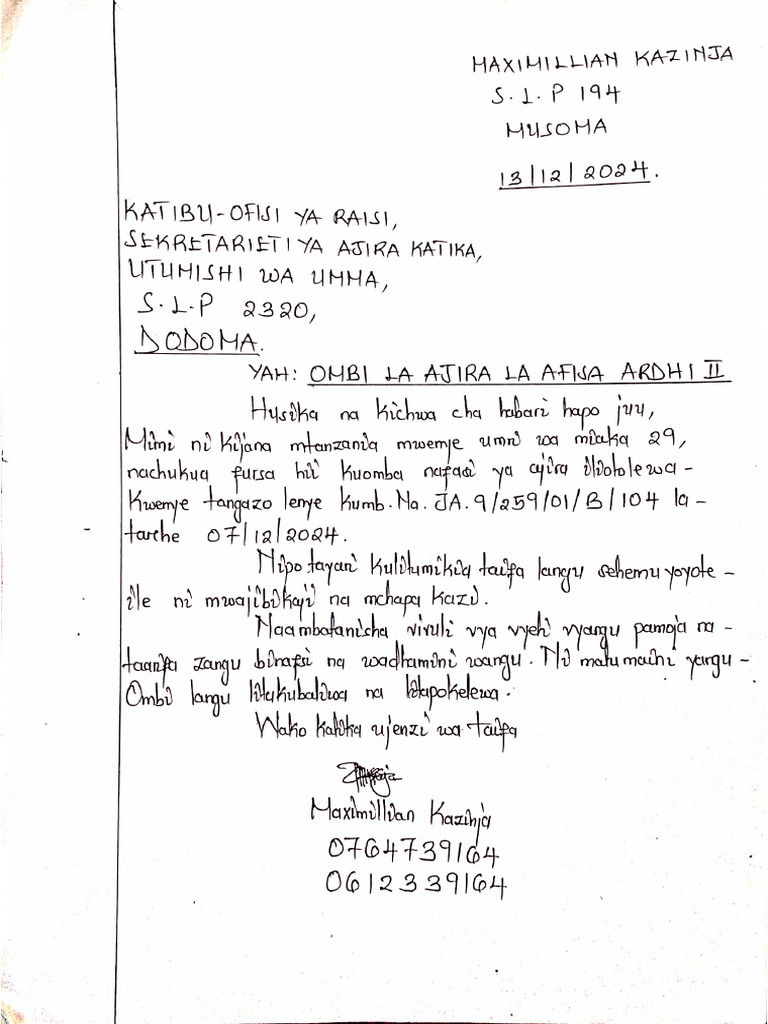 MAXIMILLIAN KAZINJA
S.L.P 194
MUSOMA
13/12/2024.
KATIBU-OFISI YA RAISI,
SEKRETARIETI YA AJIRA KATIKA,
UTUMISHI WA UMMA,
S.L.P 2320,
DODOMA.
YAH: OMBI LA AJIRA LA AFISA ARDHI II
Husika na kichwa cha habari hapo juu,
Mimi ni kijana mtanzania mwenye umri wa miaka 29,
nachukua fursa hii kuomba nafasi ya ajira iliotolewa-
Kwenye tangazo lenye kumb.Na. JA.9/259/01/B/104 la-
tarehe 07/12/2024.
Nipo tayari kulitumikia taifa langu sehemu yoyote-
ile ni mwajibikaji na mchapa kazi.
Naambatanisha vivuli vya vyeti vyangu pamoja na-
taarifa zangu binafsi na wadhamini wangu. Ni matumaini yangu-
Ombi langu litakubaliwa na litapokelewa.
Wako katika ujenzi wa taifa
Maximillian Kazinja
0764739164
0612339164